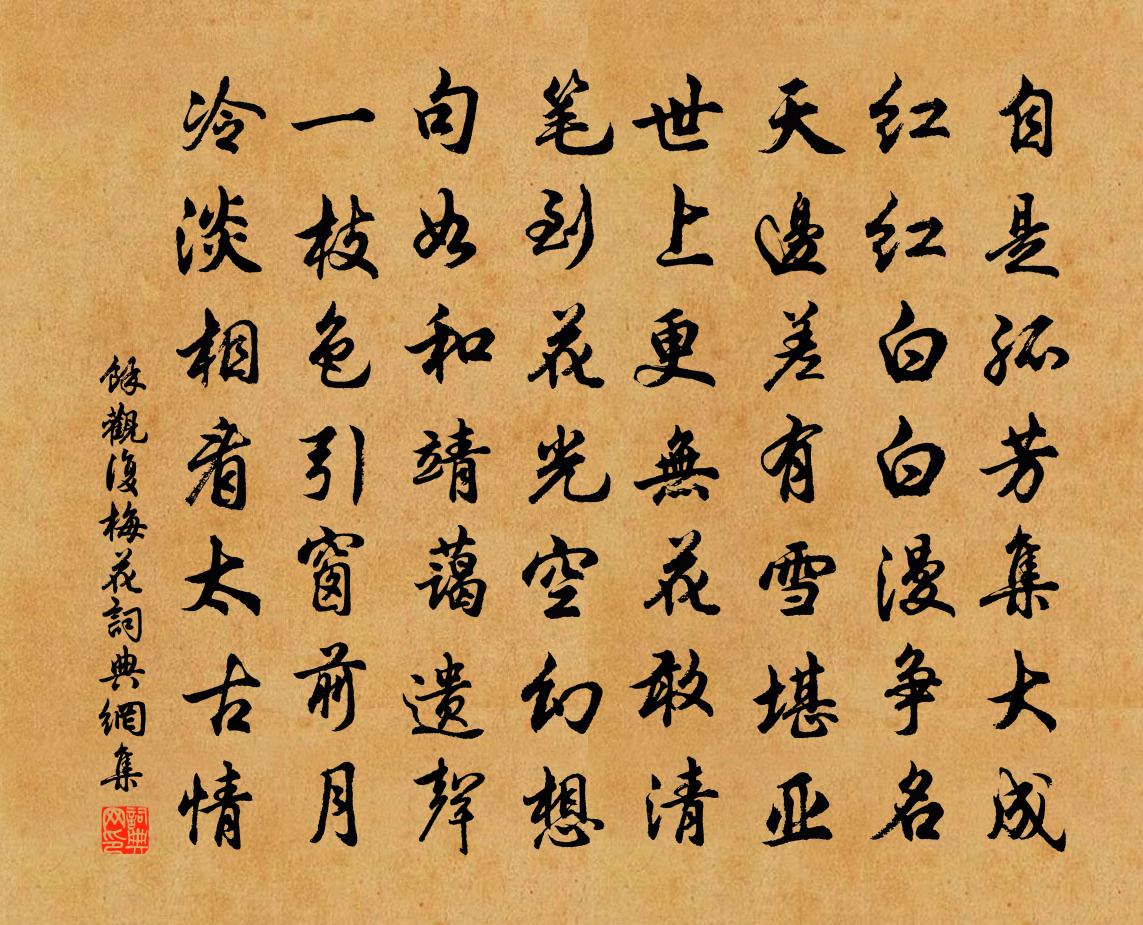 自是孤芳集大成
红红白白漫争名
天邊差有雪堪亚
世上更無花敢清
笔到花光空幻想
句如和靖蔼遗聲
一枝色引窗前月
冷淡相看太古情
餘觀復梅花詞典網集
詞典网印